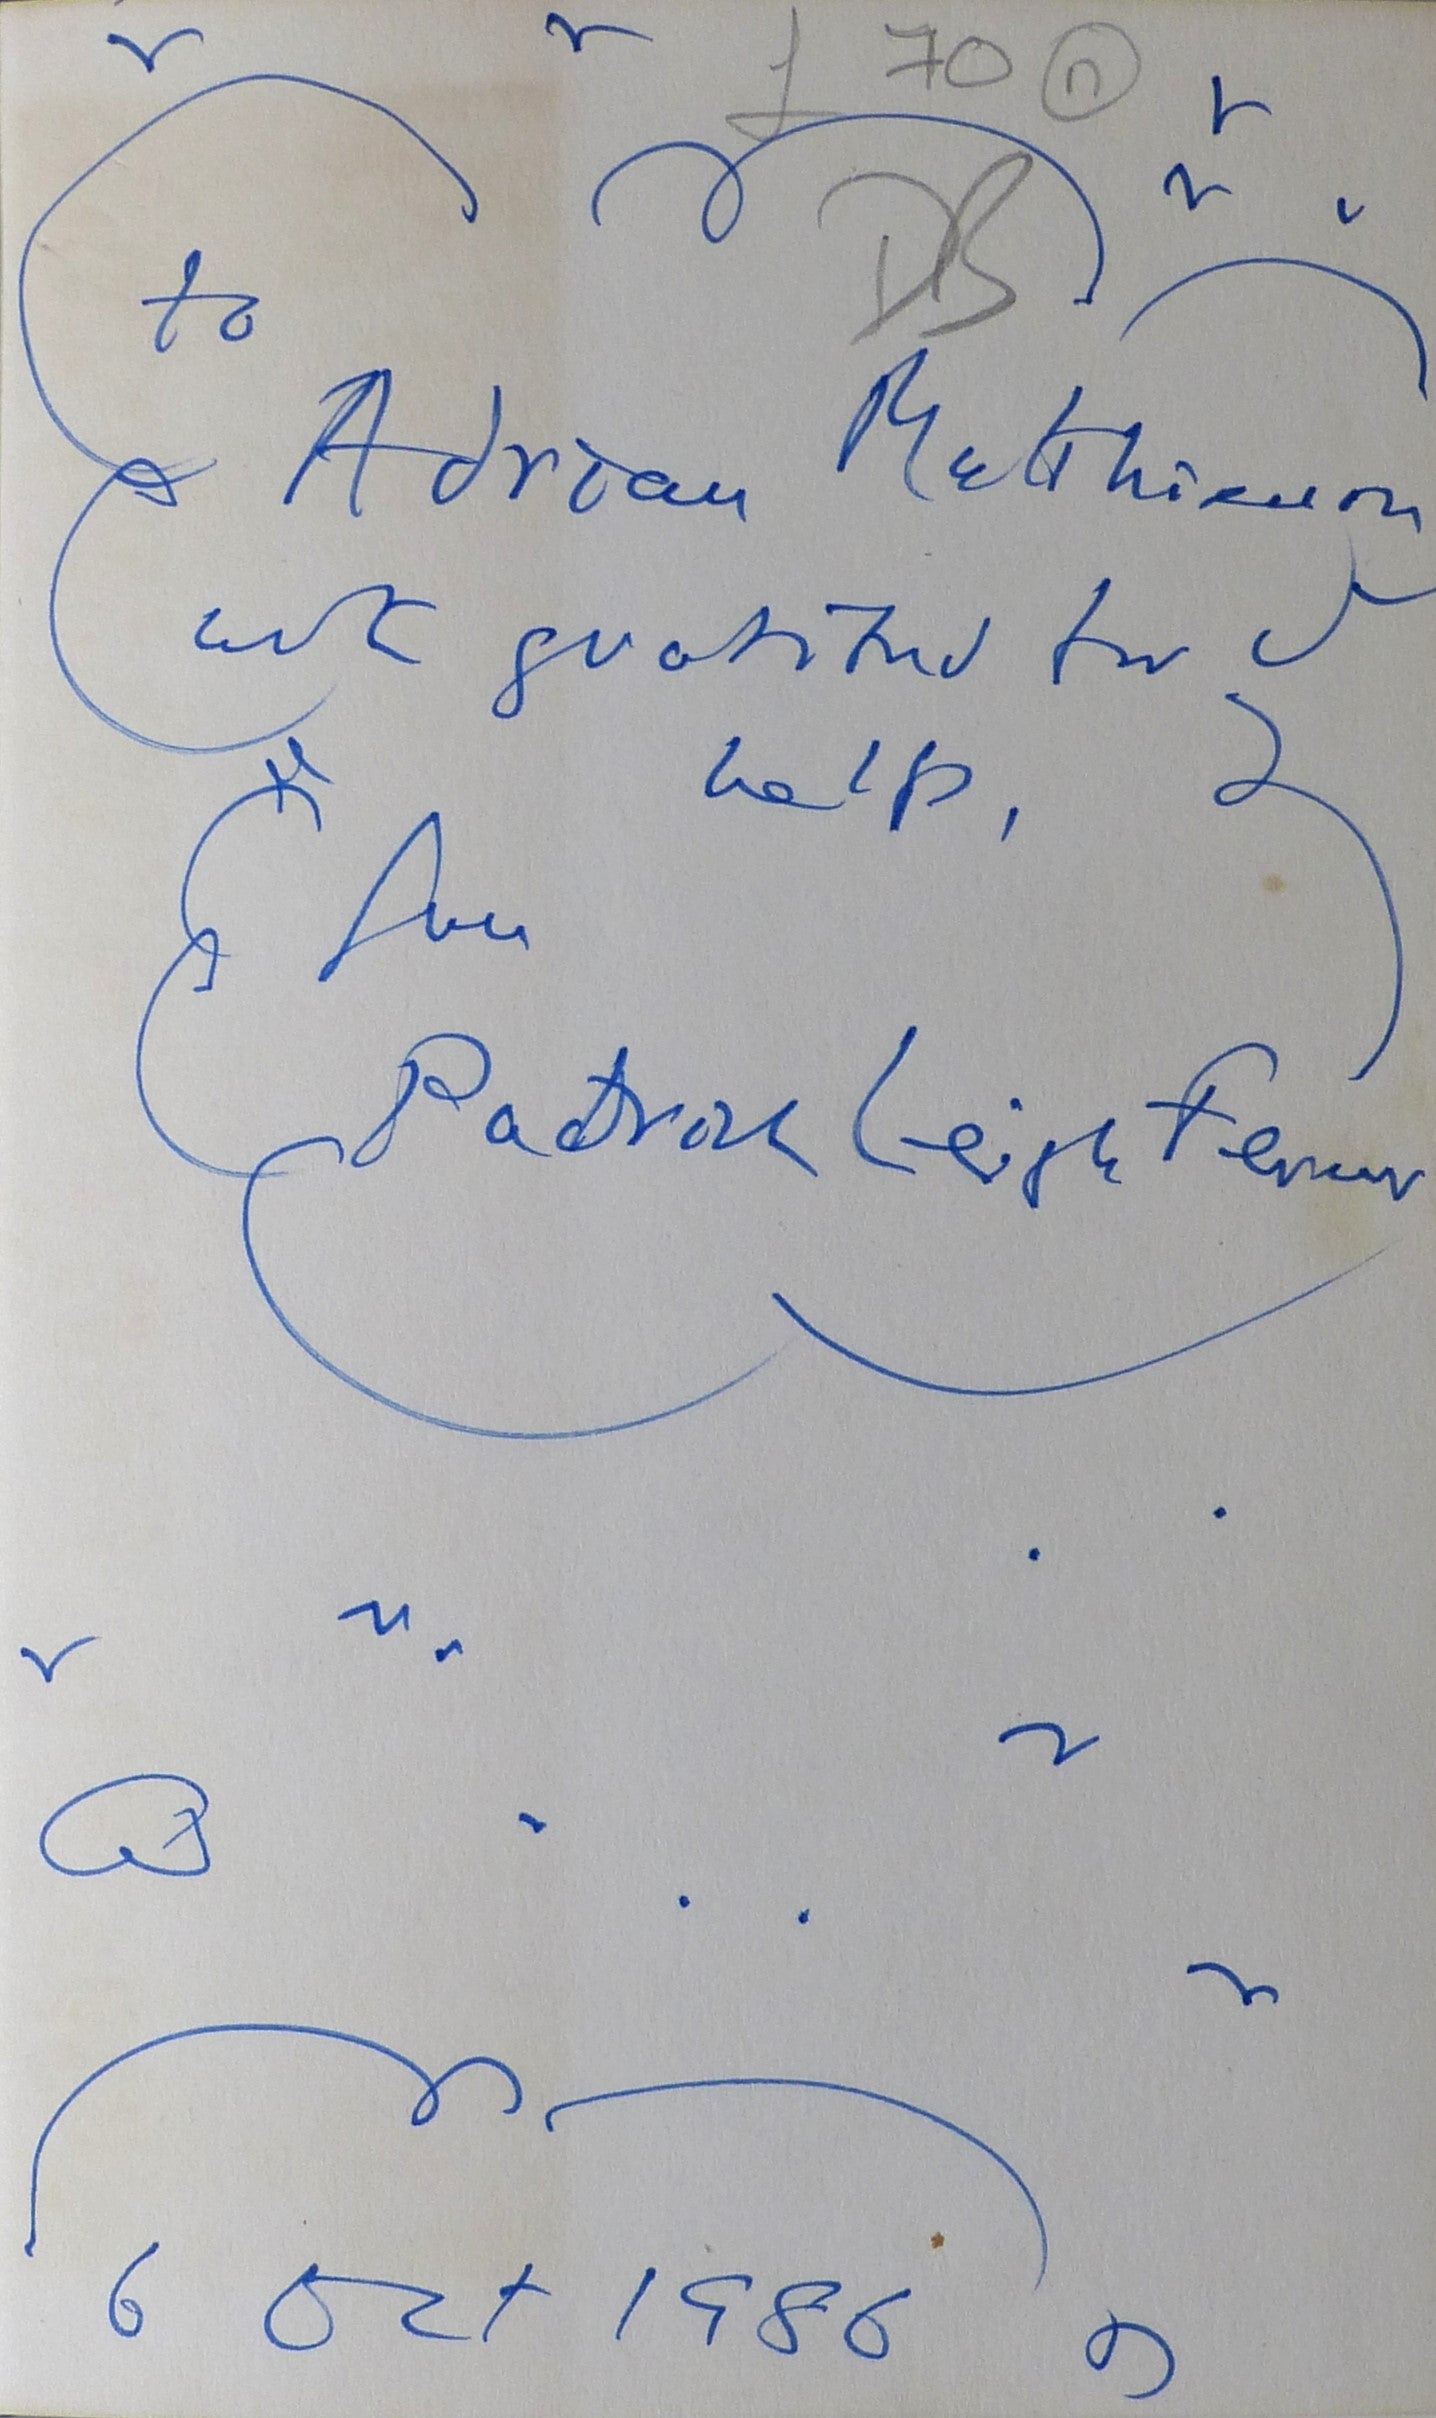 £70 n
DS
to
Adrian Matthieson
with gratitude for
help,
from
Patrick Leigh Fermor
6 Oct 1986